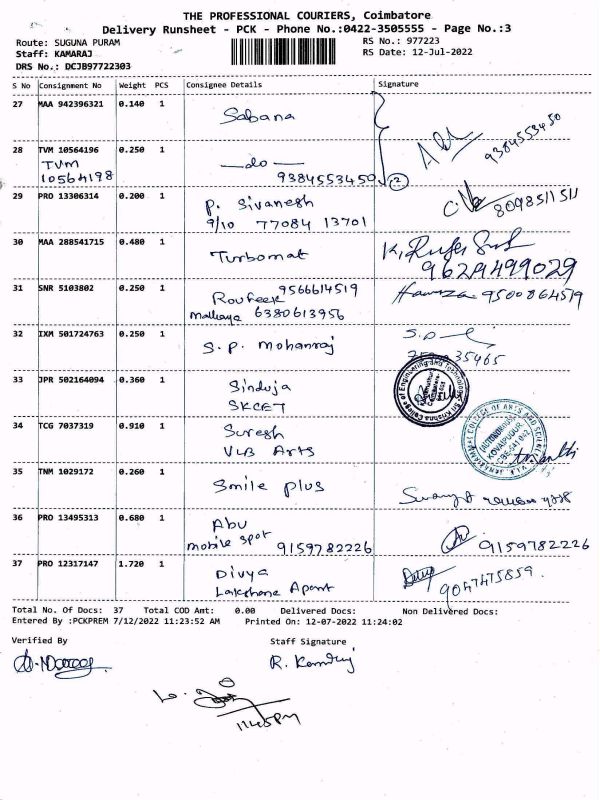 THE PROFESSIONAL COURIERS, Coimbatore
Delivery Runsheet - PCK - Phone No.:0422-3505555 - Page No.:3
Route: SUGUNA PURAM RS No.: 977223
Staff: KAMARAJ RS Date: 12-Jul-2022
DRS No.: DCJB97722303
S No Consignment No Weight PCS Consignee Details Signature
27 MAA 942396321 0.140 1 Sabana
9384553450
28 TVM 10564196 0.250 1 —do—
TVM
10564198 9384553450
29 PRO 13306314 0.200 1 P. Sivanesh
9/10 77084 13701 8098511511
30 MAA 288541715 0.480 1 Turbomat
9629499029
31 SNR 5103802 0.250 1 Roufeek 9566614519 Hamza 9500864519
6380613956
32 IXM 501724763 0.250 1 S.P. Mohanraj
35465
33 JPR 502164094 0.360 1 Sinduja
SKCET
34 TCG 7037319 0.910 1 Suresh
VLB Arts
35 TNM 1029172 0.260 1 Smile plus
36 PRO 13495313 0.680 1 Abu
mobile spot 9159782226 9159782226
37 PRO 12317147 1.720 1 Divya
Apart 9047475859
Total No. Of Docs: 37 Total COD Amt: 0.00 Delivered Docs: Non Delivered Docs:
Entered By :PCKPREM 7/12/2022 11:23:52 AM Printed On: 12-07-2022 11:24:02
Verified By Staff Signature
R. Kamraj
11.45PM